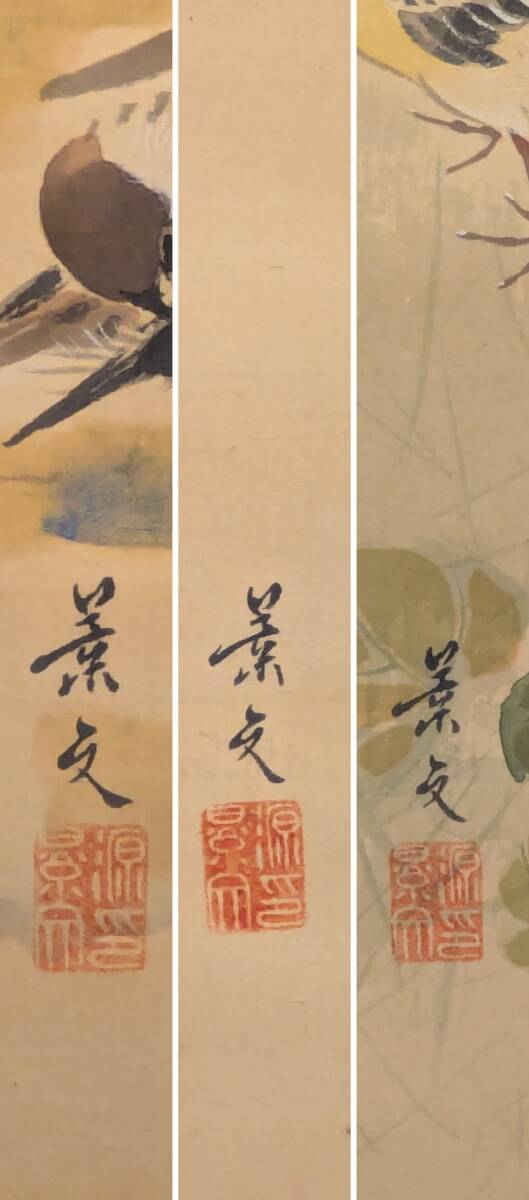 景文
源印
景文
景文
源印
景文
景文
源印
景文